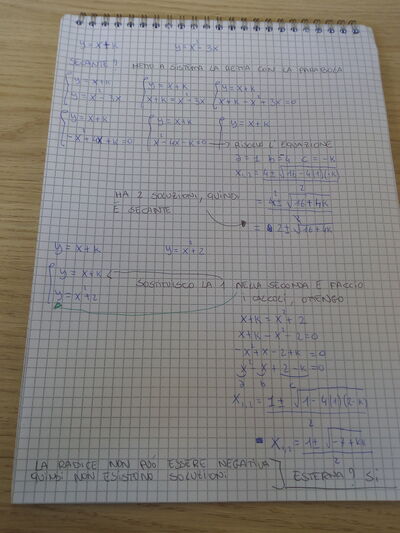 y = x+k y = x² - 3x
SECANTE? METTO A SISTEMA LA RETTA CON LA PARABOLA
{ y = x+k { y = x+k { y = x+k
{ y = x² - 3x { x+k = x² - 3x { x+k - x² + 3x = 0
{ y = x+k { y = x+k { y = x+k
{ -x² + 4x + k = 0 { x² - 4x - k = 0 → RISOLVO L'EQUAZIONE
a = 1 b = 4 c = -k
x₁,₂ = 4 ± √16 - 4(1)(-k)
2
HA 2 SOLUZIONI, QUINDI
È SECANTE
= 4 ± √16 + 4k
= 2 ± √16 + 4k
y = x+k y = x² + 2
{ y = x+k
{ y = x² + 2
SOSTITUISCO LA 1 NELLA SECONDA E FACCIO
I CALCOLI, OTTENGO
x+k = x² + 2
x+k - x² - 2 = 0
-x² + x - 2 + k = 0
x² - x + 2 - k = 0
a b c
x₁,₂ = 1 ± √1 - 4(1)(2-k)
2
x₁,₂ = 1 ± √-7 + 4k
2
LA RADICE NON PUÒ ESSERE NEGATIVA
QUINDI NON ESISTONO SOLUZIONI
ESTERNA? SI